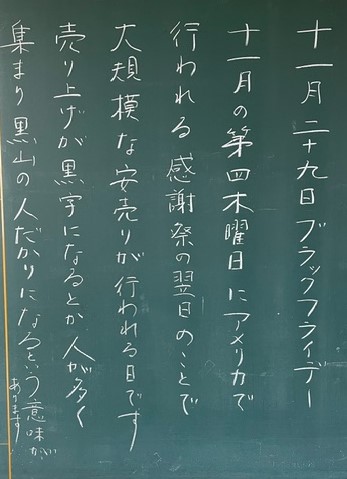 十一月二十九日ブラックフライデー
十一月の第四木曜日にアメリカで
行われる感謝祭の翌日のことで
大規模な安売りが行われる日です
売り上げが黒字になるとか人が多く
集まり黒山の人だかりになるという意味が
あります